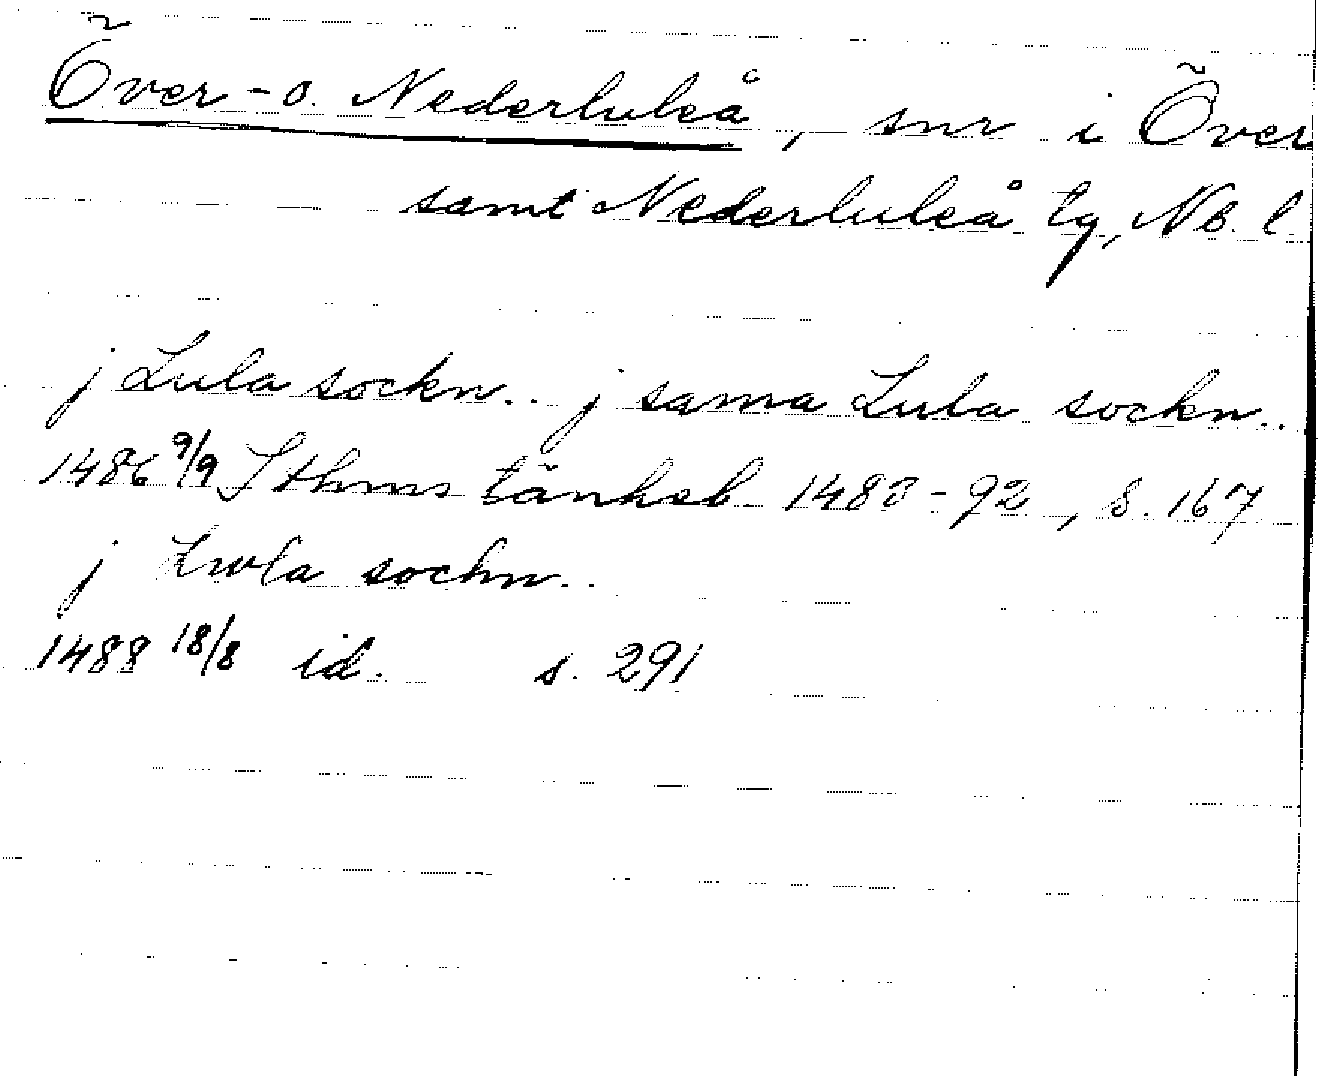 Över- o. Nederluleå, snr i Över
samt Nederluleå tg, Nb. l.
j Lula sockn.. j sama Lula sockn..
1486 9/9 Sthms tänkeb 1483-92, s. 167
j Lwla sochn..
1488 18/8 id. s. 291